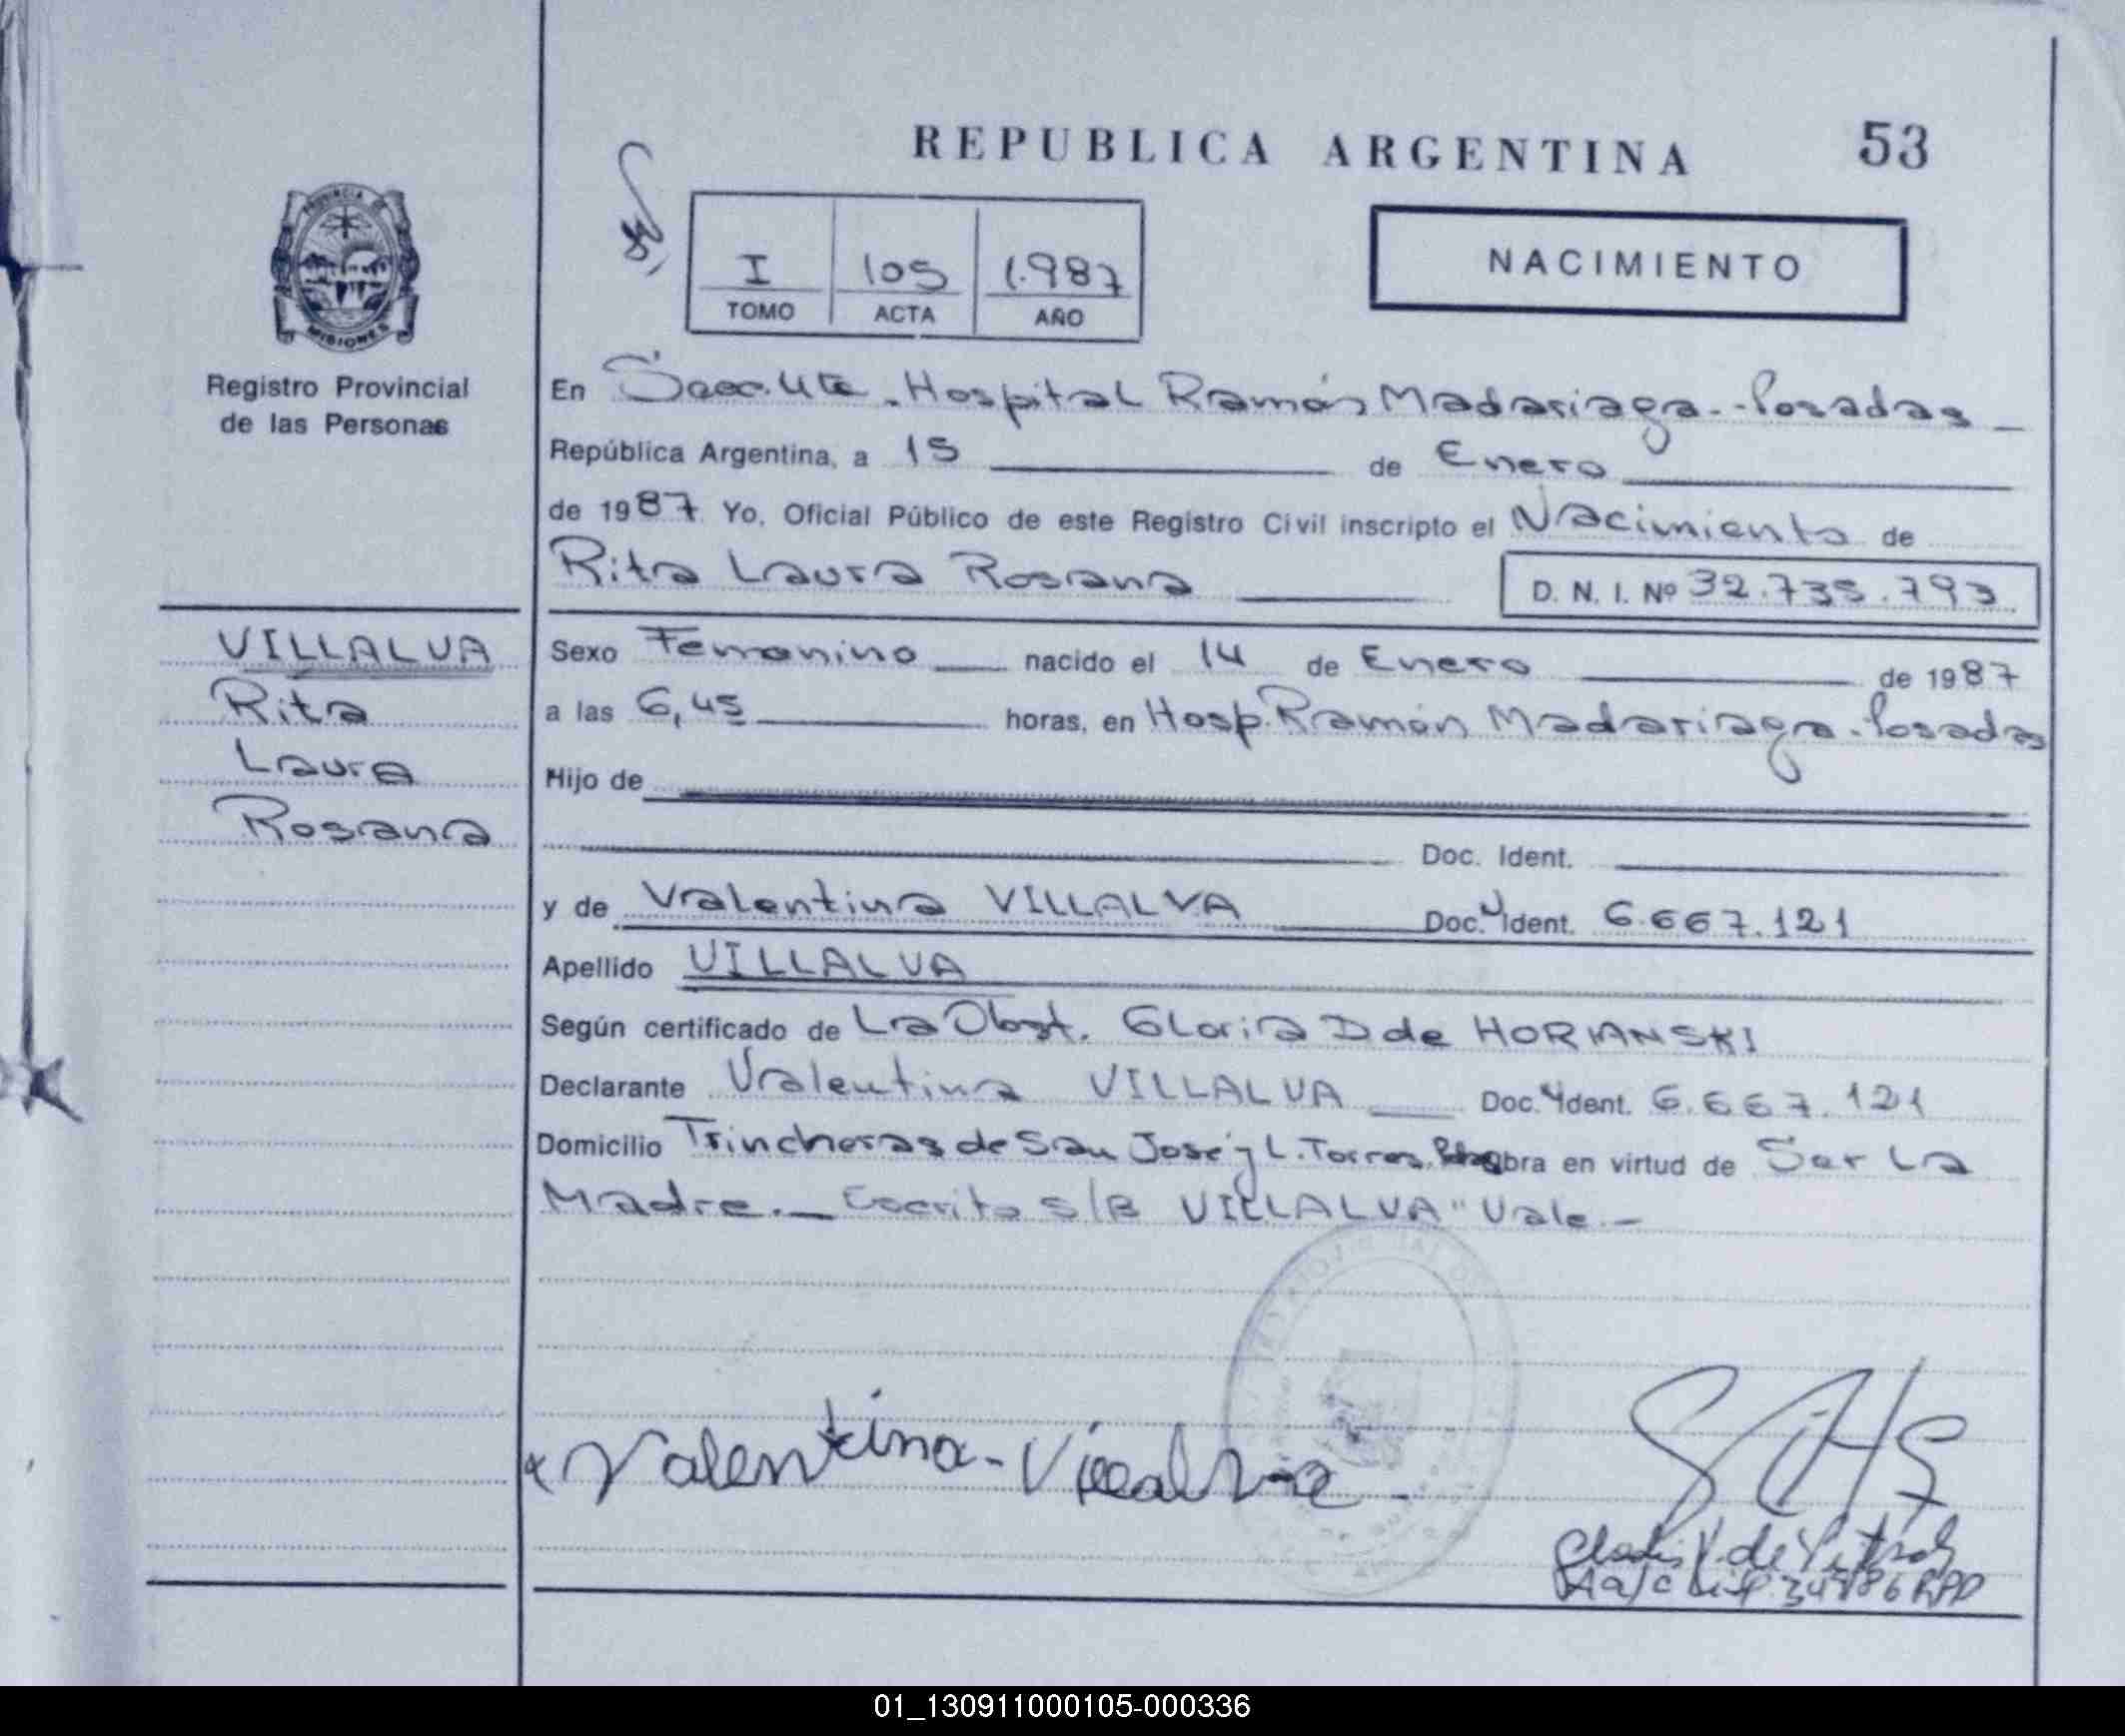 REPUBLICA ARGENTINA 53
I 105 1.987
TOMO ACTA AÑO
NACIMIENTO
PROVINCIA DE MISIONES
Registro Provincial
de las Personas
VILLALVA
Rita
Laura
Rosana
En Secc. 4ta. Hospital Ramón Madariaga - Posadas
República Argentina, a 15 de Enero
de 1987 Yo, Oficial Público de este Registro Civil inscripto el Nacimiento de
Rita Laura Rosana D. N. I. Nº 32.735.793
Sexo Femenino nacido el 14 de Enero de 1987
a las 6,45 horas, en Hosp. Ramón Madariaga - Posadas
Hijo de
Doc. Ident.
y de Valentina VILLALVA Doc. Ident. 6.667.121
Apellido VILLALVA
Según certificado de La Obst. Gloria D de HORIANSKI
Declarante Valentina VILLALVA Doc. Ident. 6.667.121
Domicilio Trincheras de San José y L. Torres, obra en virtud de Ser La
Madre. Escrito s/B VILLALVA" Vale.-
Valentina - Villalva
01_130911000105-000336